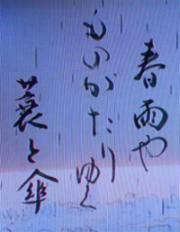 春雨や
ものがたりゆく
蓑と傘